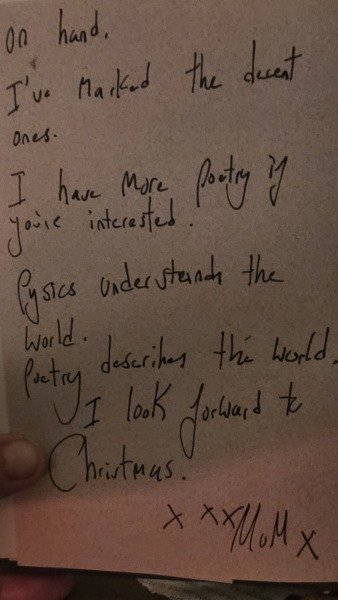 on hand.
I've marked the decent
ones.
I have more Poetry if
you're interested.
Pysics understands the
World.
Poetry describes the World.
I look forward to
Christmas.
x xxMuM x